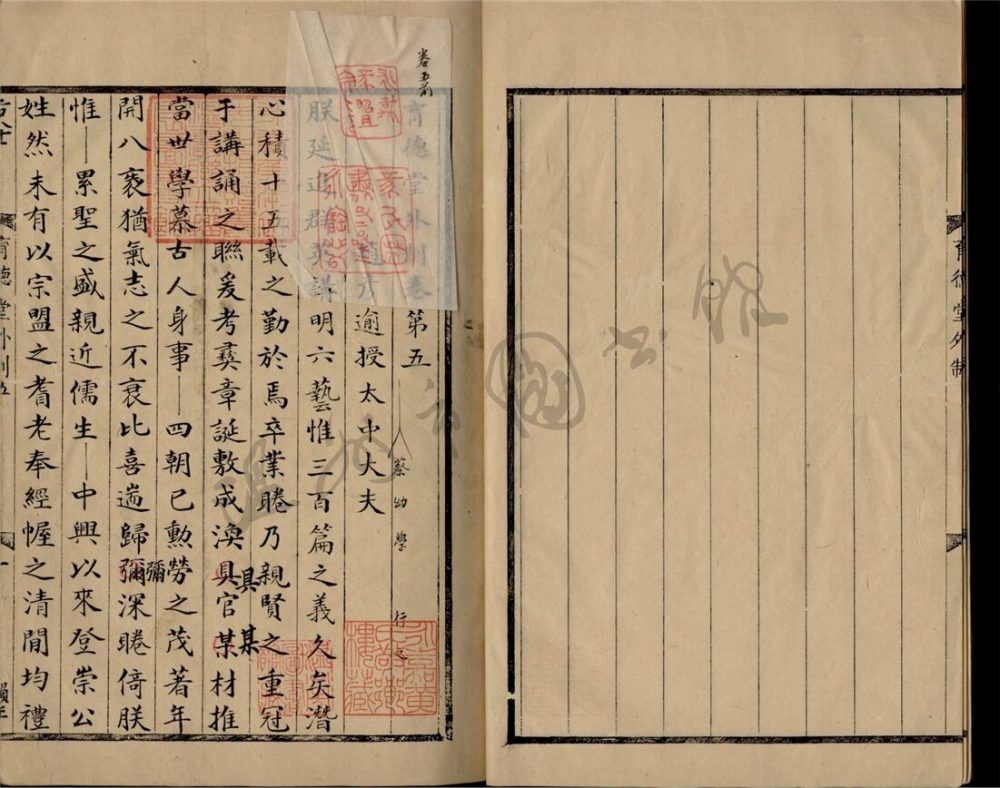 育德堂外制
卷五
育德堂外制卷第五
蔡幼學 行之
逾授太中大夫
朕延進群英講明六藝惟三百篇之義久矣潛
心積十五載之勤於焉卒業睠乃親賢之重冠
于講誦之聯爰考彛章誕敷成渙具官某材推
具
某
當世學慕古人身事四朝已勲勞之茂著年
開八袠猶氣志之不衰比喜遄歸彌深睠倚朕
彌
惟累聖之盛親近儒生中興以來登崇公
姓然未有以宗盟之耆老奉經幄之清閒均禮
育德堂外制五
一
永嘉黃
氏敬鄉
樓藏
溫州市圖書館